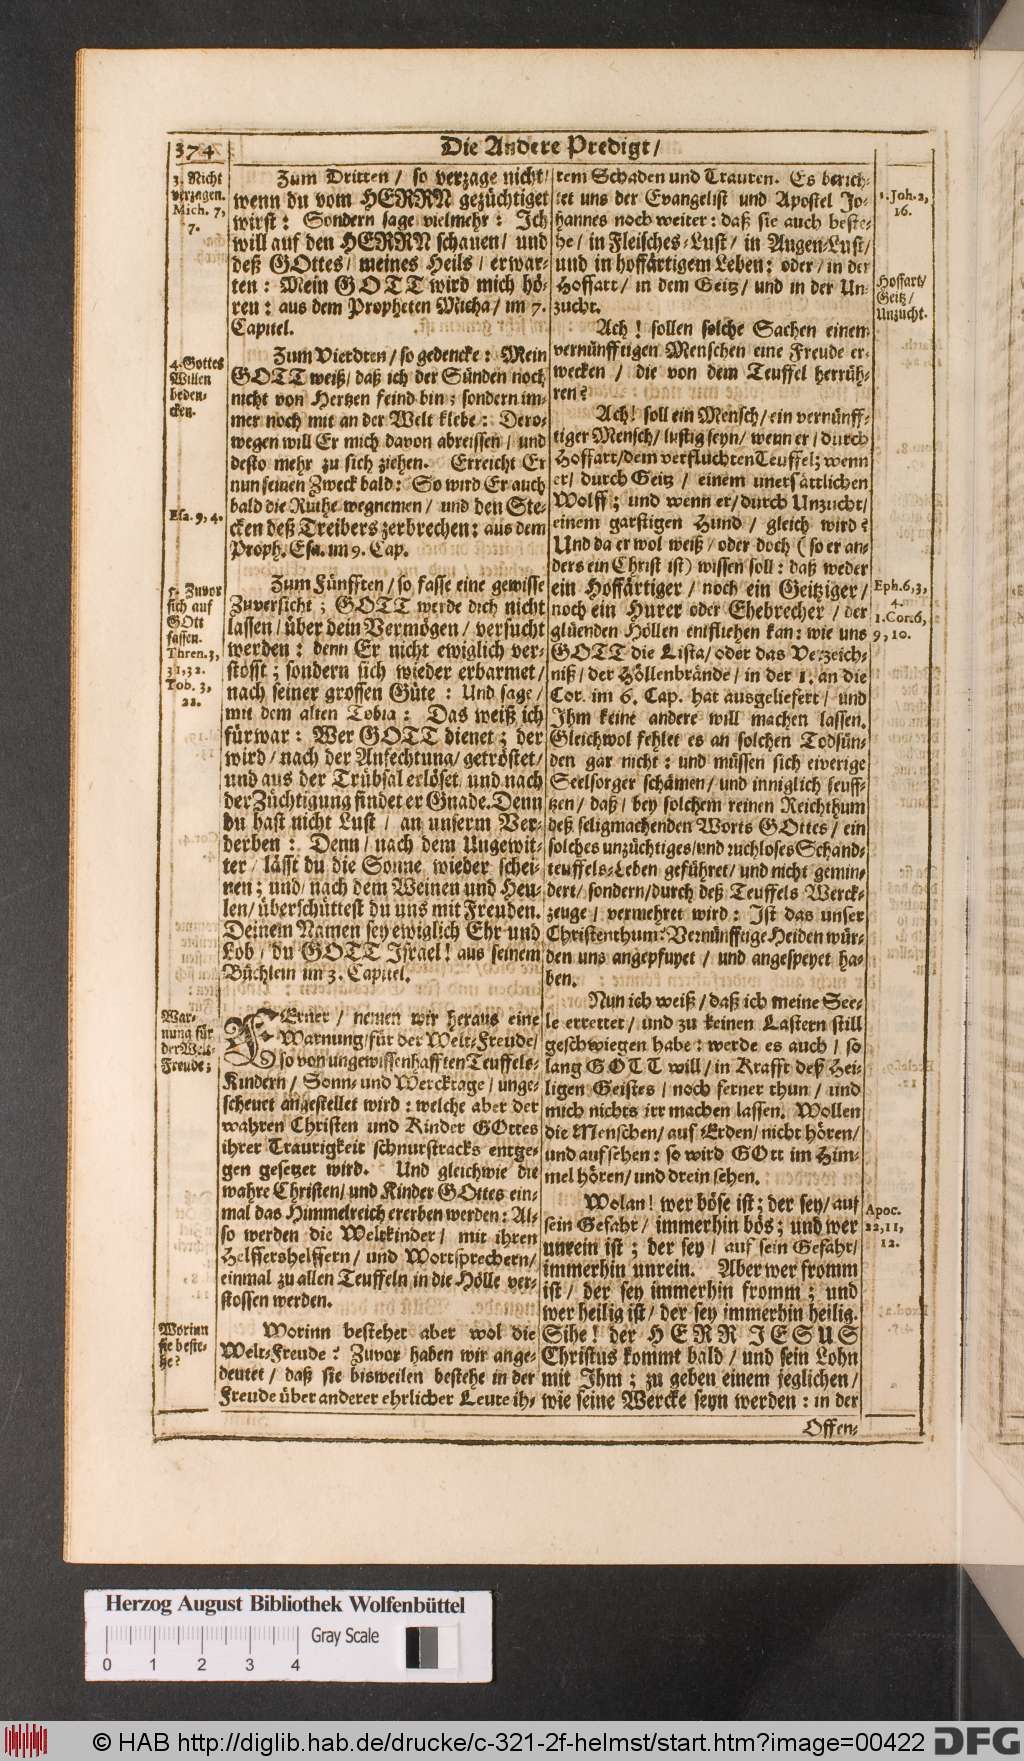 374
Die Andere Predigt/
3. Nicht
verzagen.
Mich. 7,
7.
4. Gottes
Willen
beden-
cken.
Esa. 9, 4.
5. Zuvor
sich auf
GOtt
fassen.
Thren. 3,
31, 32.
Tob. 3,
22.
War-
nung für
der Welt-
Freude;
Worinn
sie beste-
he?
Zum Dritten / so verzage nicht/
wenn du vom HERRN gezüchtiget
wirst: Sondern sage vielmehr: Ich
will auf den HERRN schauen/ und
deß GOttes/ meines Heils/ erwar-
ten: Mein GOTT wird mich hö-
ren: aus dem Propheten Micha/ im 7.
Capitel.
Zum Vierdten/ so gedencke: Mein
GOTT weiß/ daß ich der Sünden noch
nicht von Hertzen feind bin; sondern im-
mer noch mit an der Welt klebe: Dero-
wegen will Er mich davon abreissen/ und
desto mehr zu sich ziehen. Erreicht Er
nun seinen Zweck bald: So wird Er auch
bald die Ruthe wegnemen/ und den Ste-
cken deß Treibers zerbrechen: aus dem
Proph. Esa. im 9. Cap.
Zum Fünfften/ so fasse eine gewisse
Zuversicht; GOTT werde dich nicht
lassen/ über dein Vermögen/ versucht
werden: denn Er nicht ewiglich ver-
stösst; sondern sich wieder erbarmet/
nach seiner grossen Güte: Und sage/
mit dem alten Tobia: Das weiß ich
fürwar: Wer GOTT dienet; der
wird/ nach der Anfechtung/ getröstet/
und aus der Trübsal erlöset/ und nach
der Züchtigung findet er Gnade. Denn
du hast nicht Lust / an unserm Ver-
derben: Denn/ nach dem Ungewit-
ter / lässt du die Sonne wieder schei-
nen; und/ nach dem Weinen und Heu-
len/ überschüttest du uns mit Freuden.
Deinem Namen sey ewiglich Ehr und
Lob / du GOTT Israel! aus seinem
Büchlein im 3. Capitel.
FErner / nemen wir heraus eine
Warnung/ für der Welt-Freude/
so von ungewissenhafften Teuffels-
Kindern/ Sonn- und Wercktage/ unge-
scheuet angestellet wird: welche aber der
wahren Christen und Kinder GOttes
ihrer Traurigkeit schnurstracks entge-
gen gesetzet wird. Und gleichwie die
wahre Christen/ und Kinder GOttes ein-
mal das Himmelreich ererben werden: Al-
so werden die Weltkinder/ mit ihren
Helffershelffern/ und Wortsprechern/
einmal zu allen Teuffeln in die Hölle ver-
stossen werden.
Worinn bestehet aber wol die
Welt-Freude? Zuvor haben wir ange-
deutet/ daß sie bisweilen bestehe in der
Freude über anderer ehrlicher Leute ih-
rem Schaden und Trauren. Es berich-
tet uns der Evangelist und Apostel Jo-
hannes noch weiter: daß sie auch beste-
he/ in Fleisches-Lust/ in Augen-Lust/
und in hoffärtigem Leben: oder/ in der
Hoffart/ in dem Geitz/ und in der Un-
zucht.
Ach! sollen solche Sachen einem
vernünfftigen Menschen eine Freude er-
wecken / die von dem Teuffel herrüh-
ren?
Ach! soll ein Mensch/ ein vernünff-
tiger Mensch/ lustig seyn/ wenn er/ durch
Hoffart/ dem verfluchten Teuffel; wenn
er/ durch Geitz / einem unersättlichen
Wolff; und wenn er/ durch Unzucht/
einem garstigen Hund / gleich wird?
Und da er wol weiß/ oder doch (so er an-
ders ein Christ ist) wissen soll: daß weder
ein Hoffärtiger / noch ein Geitziger/
noch ein Hurer oder Ehebrecher / der
glüenden Höllen entfliehen kan: wie uns
GOTT die Lista/ oder das Verzeich-
niß/ der Höllenbrände/ in der 1. an die
Cor. im 6. Cap. hat ausgeliefert/ und
Ihm keine andere will machen lassen.
Gleichwol fehlet es an solchen Todsün-
den gar nicht: und müssen sich eiverige
Seelsorger schämen/ und inniglich seuff-
tzen/ daß/ bey solchem reinen Reichthum
deß seligmachenden Worts GOttes/ ein
solches unzüchtiges/ und ruchloses Schand-
teuffels-Leben geführet/ und nicht gemin-
dert/ sondern/ durch deß Teuffels Werck-
zeuge / vermehret wird: Ist das unser
Christenthum? Vernünfftige Heiden wür-
den uns anpfuyet / und angespeyet ha-
ben.
Nun ich weiß/ daß ich meine See-
le errettet/ und zu keinen Lastern still
geschwiegen habe: werde es auch / so
lang GOTT will/ in Krafft deß Hei-
ligen Geistes/ noch ferner thun/ und
mich nichts irr machen lassen. Wollen
die Menschen/ auf Erden/ nicht hören/
und aufsehen: so wird GOtt im Him-
mel hören/ und drein sehen.
Wolan! wer böse ist; der sey/ auf
sein Gefahr/ immerhin bös; und wer
unrein ist; der sey / auf sein Gefahr/
immerhin unrein. Aber wer fromm
ist/ der sey immerhin fromm; und
wer heilig ist/ der sey immerhin heilig.
Sihe! der HERR JESUS
Christus kommt bald/ und sein Lohn
mit Ihm; zu geben einem jeglichen/
wie seine Wercke seyn werden: in der
Offen-
1. Joh. 2,
16.
Hoffart/
Geitz/
Unzucht.
Eph. 6, 3,
4.
1. Cor. 6,
9, 10.
Apoc.
22, 11,
12.
Herzog August Bibliothek Wolfenbüttel
Gray Scale
0 1 2 3 4
© HAB http://diglib.hab.de/drucke/c-321-2f-helmst/start.htm?image=00422
DFG